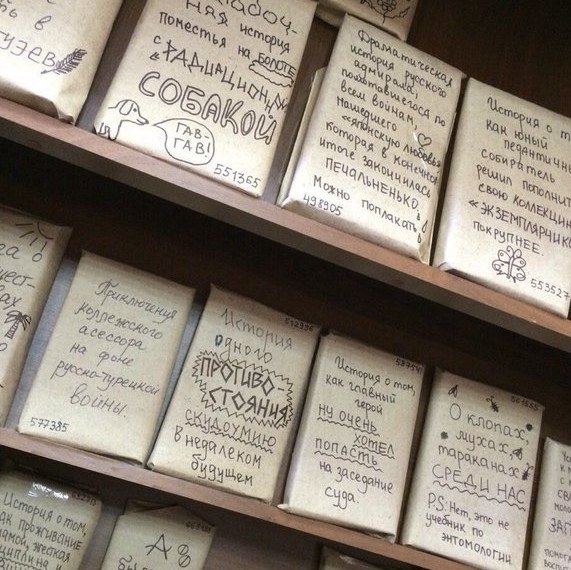 в
ная история
поместья на болоте
с «радиационной
СОБАКОЙ
ГАВ-
ГАВ!
551365
Драматическая
история русского
адмирала,
по всем войнам,
нашедшего
«японскую любовь»
которая в конечном
итоге закончилась
ПЕЧАЛЬНЕНЬКО.
Можно поплакать
498905
История о
как юный
педантичный
собиратель
решил пополнить
свою коллекцию
«ЭКЗЕМПЛЯРЧИКОМ»
покрупнее.
553527
Приключения
коллежского
асессора
на фоне
русско-турецкой
войны.
577385
История
одного
ПРОТИВО
СТОЯНИЯ
СКУДОУМИЮ
в недалеком
будущем
История о том,
как главный
герой
ну очень
ХОТЕЛ
ПОПАСТЬ
на заседание
суда.
О клопах,
мухах,
тараканах
СРЕДИ НАС
P.S. Нет, это не
учебник по
энтомологии
История о том,
как проживание
жёсткая